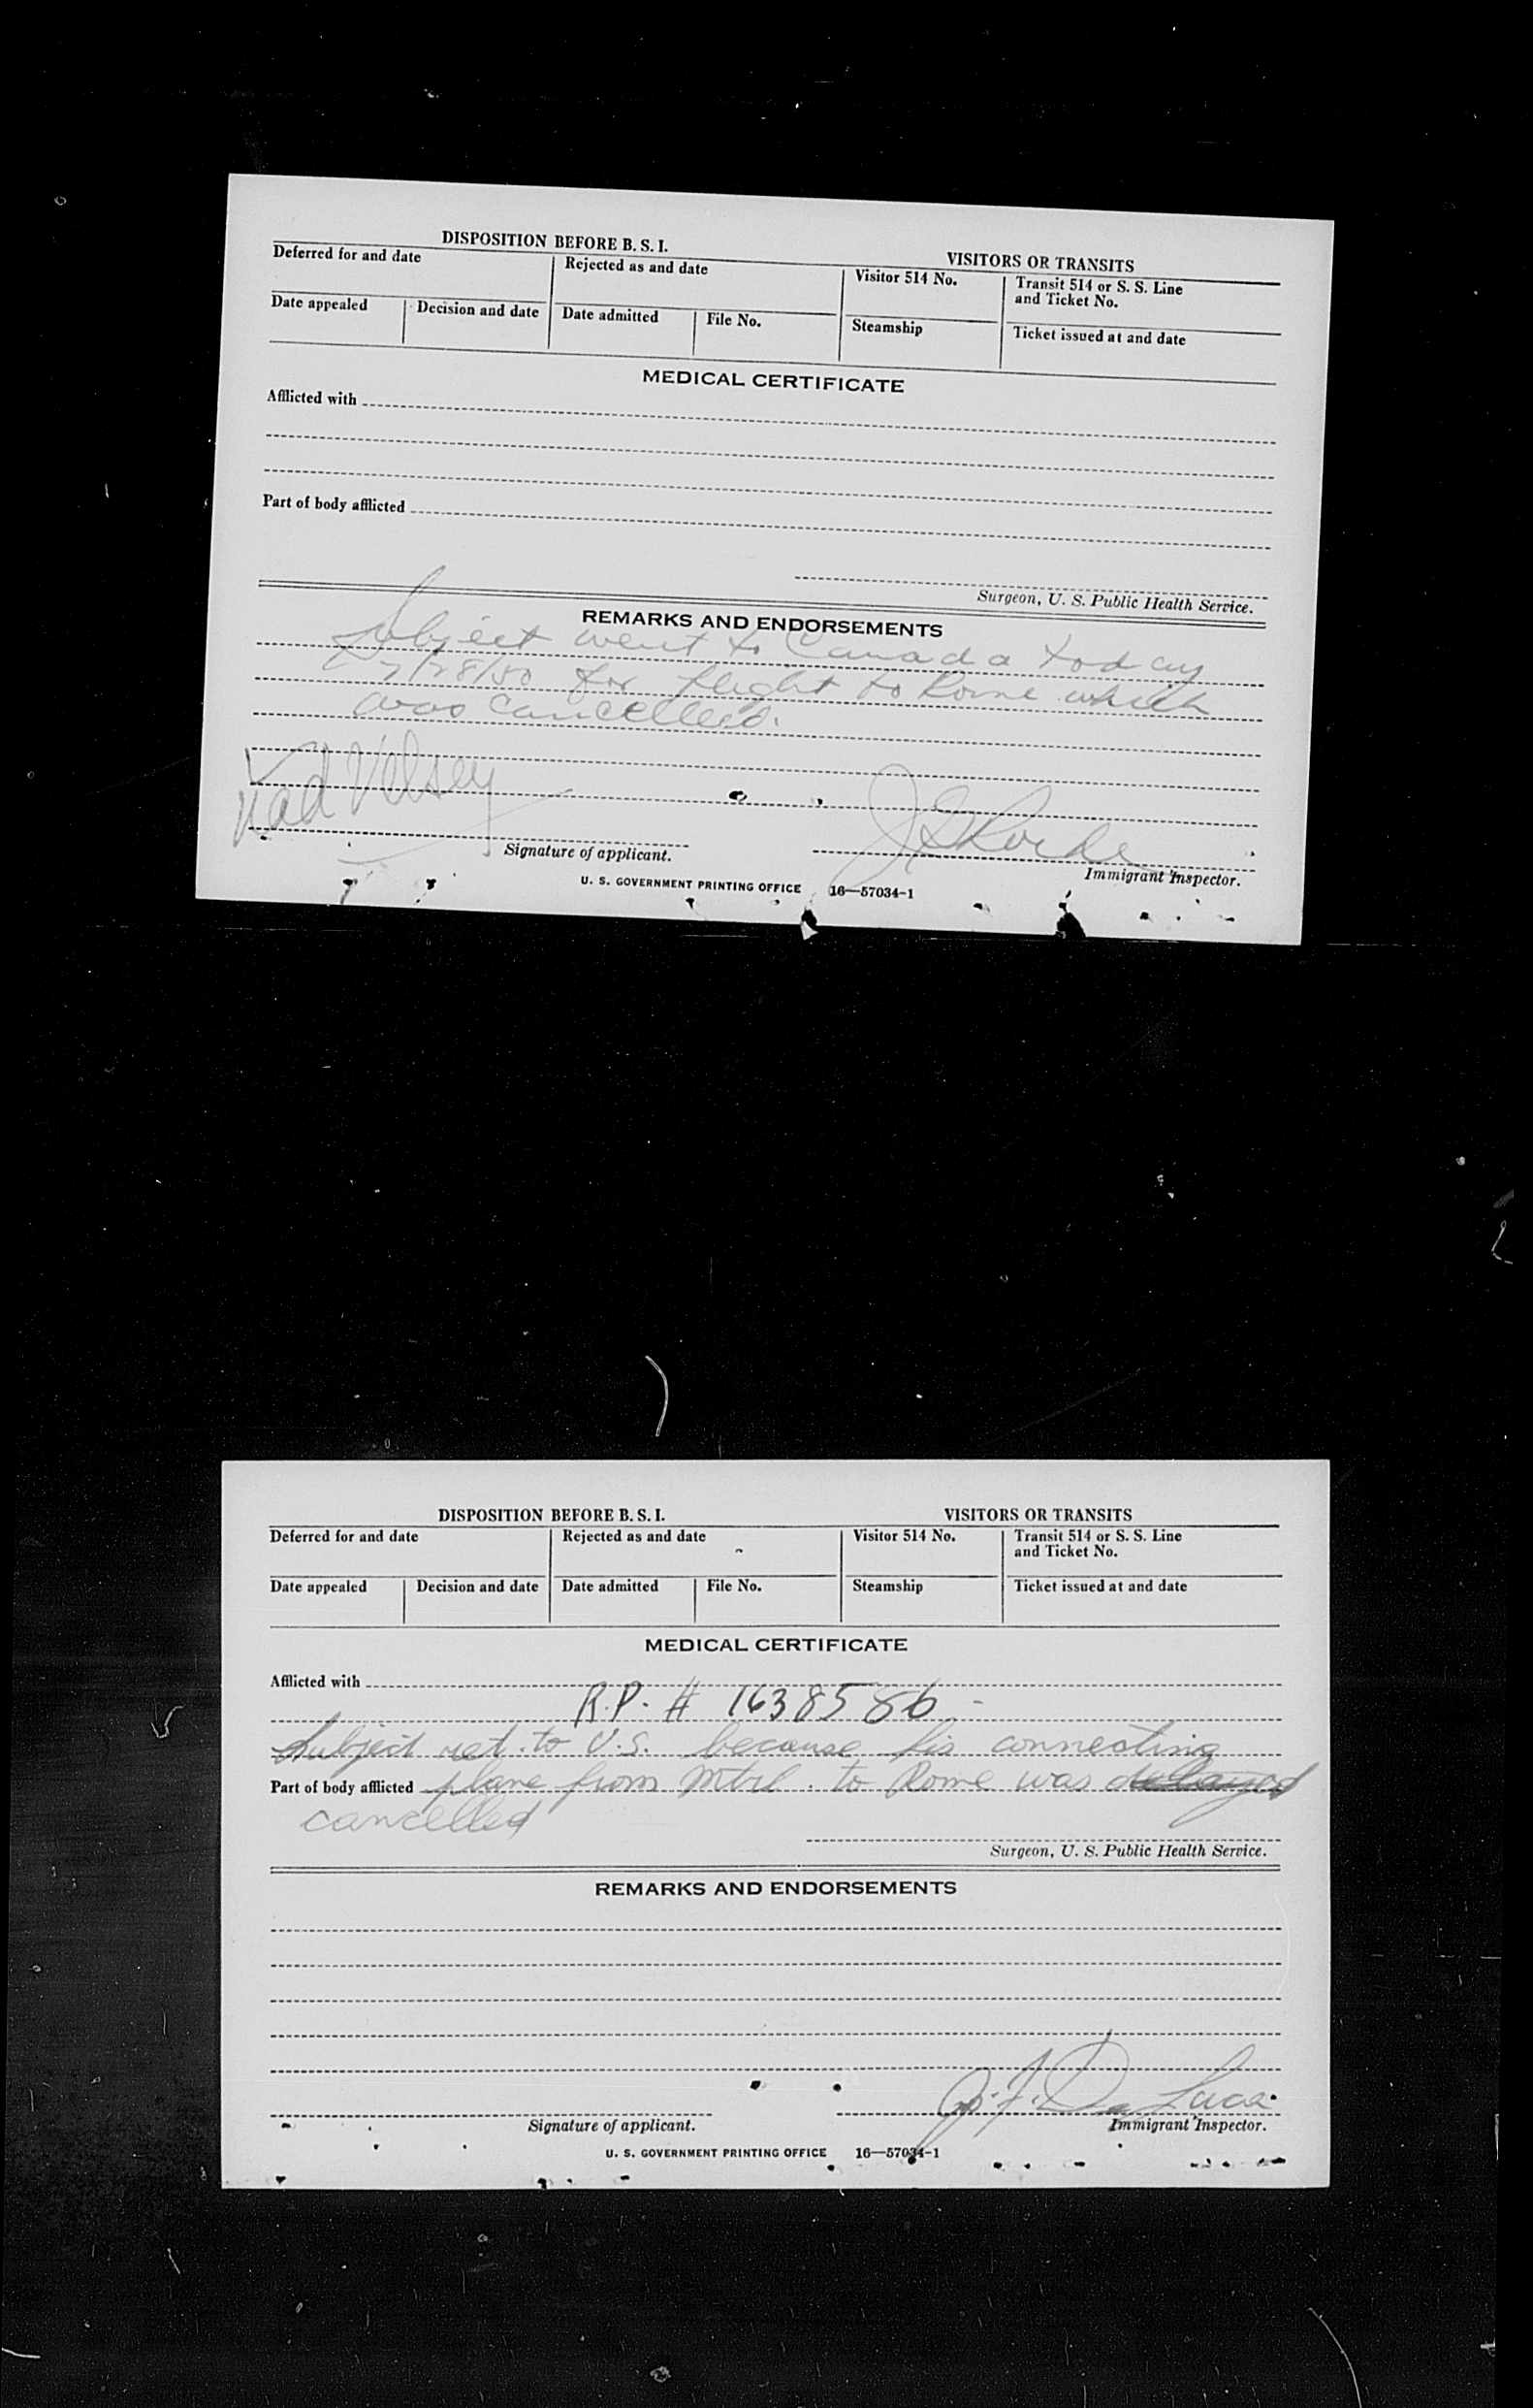 DISPOSITION BEFORE B. S. I.
VISITORS OR TRANSITS
Deferred for and date
Rejected as and date
Visitor 514 No.
Transit 514 or S. S. Line
and Ticket No.
Date appealed
Decision and date
Date admitted
File No.
Steamship
Ticket issued at and date
MEDICAL CERTIFICATE
Afflicted with
Part of body afflicted
Surgeon, U. S. Public Health Service.
REMARKS AND ENDORSEMENTS
Subject went to Canada today
7/28/50 for flight to Rome which
was cancelled.
Signature of applicant.
Immigrant Inspector.
U. S. GOVERNMENT PRINTING OFFICE 16—57034-1
DISPOSITION BEFORE B. S. I.
VISITORS OR TRANSITS
Deferred for and date
Rejected as and date
Visitor 514 No.
Transit 514 or S. S. Line
and Ticket No.
Date appealed
Decision and date
Date admitted
File No.
Steamship
Ticket issued at and date
MEDICAL CERTIFICATE
Afflicted with
R.P. # 1638586 -
Subject ret. to U.S. because his connecting
Part of body afflicted plane from Mtrl. to Rome was delayed
cancelled
Surgeon, U. S. Public Health Service.
REMARKS AND ENDORSEMENTS
De Luca
Signature of applicant.
Immigrant Inspector.
U. S. GOVERNMENT PRINTING OFFICE 16—57034-1